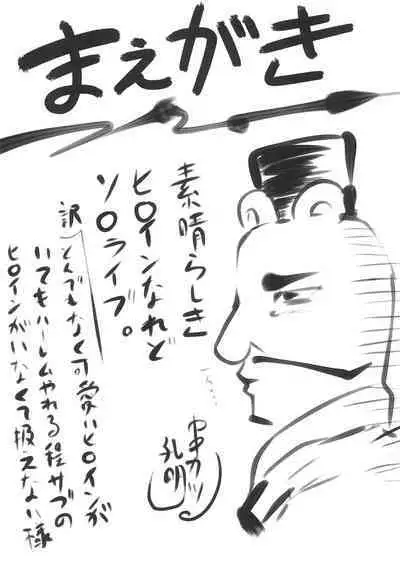 まえがき
素晴らしき
ヒロインなれど
ソロライブ。
訳)とんでもなく可愛いヒロインが
いてもハーレムやれる程サブの
ヒロインがいなくて扱えない様
串カツ
孔明